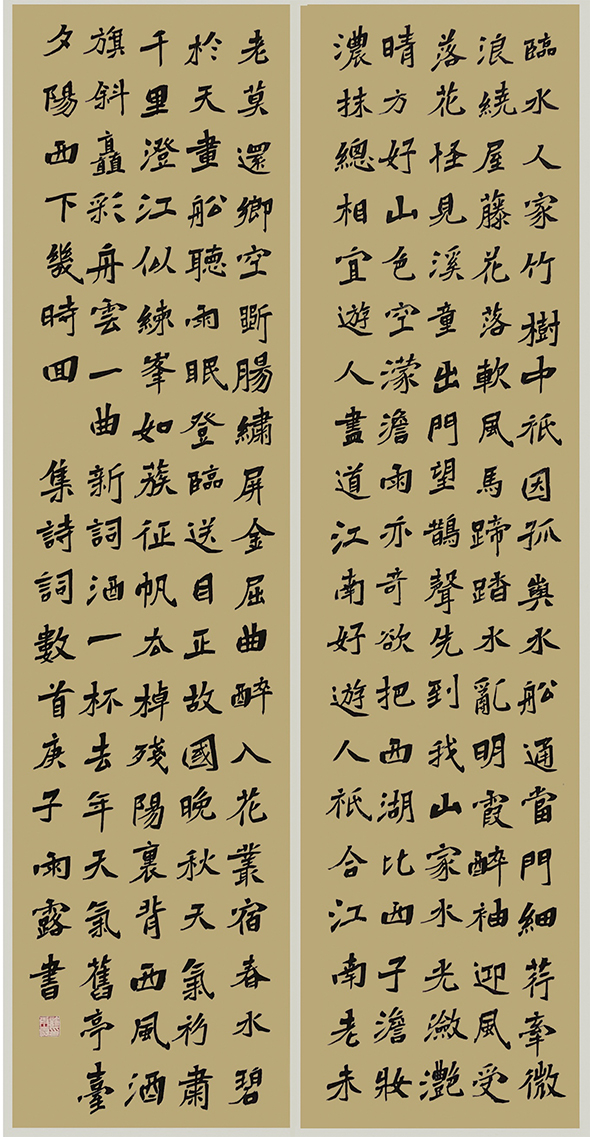 臨水人家竹樹中祇因孤與水船通當門細荇牽微
浪繞屋藤花落軟風馬蹄踏水亂明霞醉袖迎風受
落花怪見溪童出門望鵲聲先到我山家水光瀲灩
晴方好山色空濛澹雨亦奇欲把西湖比西子澹妝
濃抹總相宜遊人盡道江南好遊人祇合江南老未
老莫還鄉空斷腸繡屏金屈曲醉入花叢宿春水碧
於天畫船聽雨眠登臨送目正故國晚秋天氣初肅
千里澄江似練峯如蔟征帆去棹殘陽裏背西風酒
旗斜矗彩舟雲一曲新詞酒一杯去年天氣舊亭臺
夕陽西下幾時回 集詩詞數首庚子雨露書